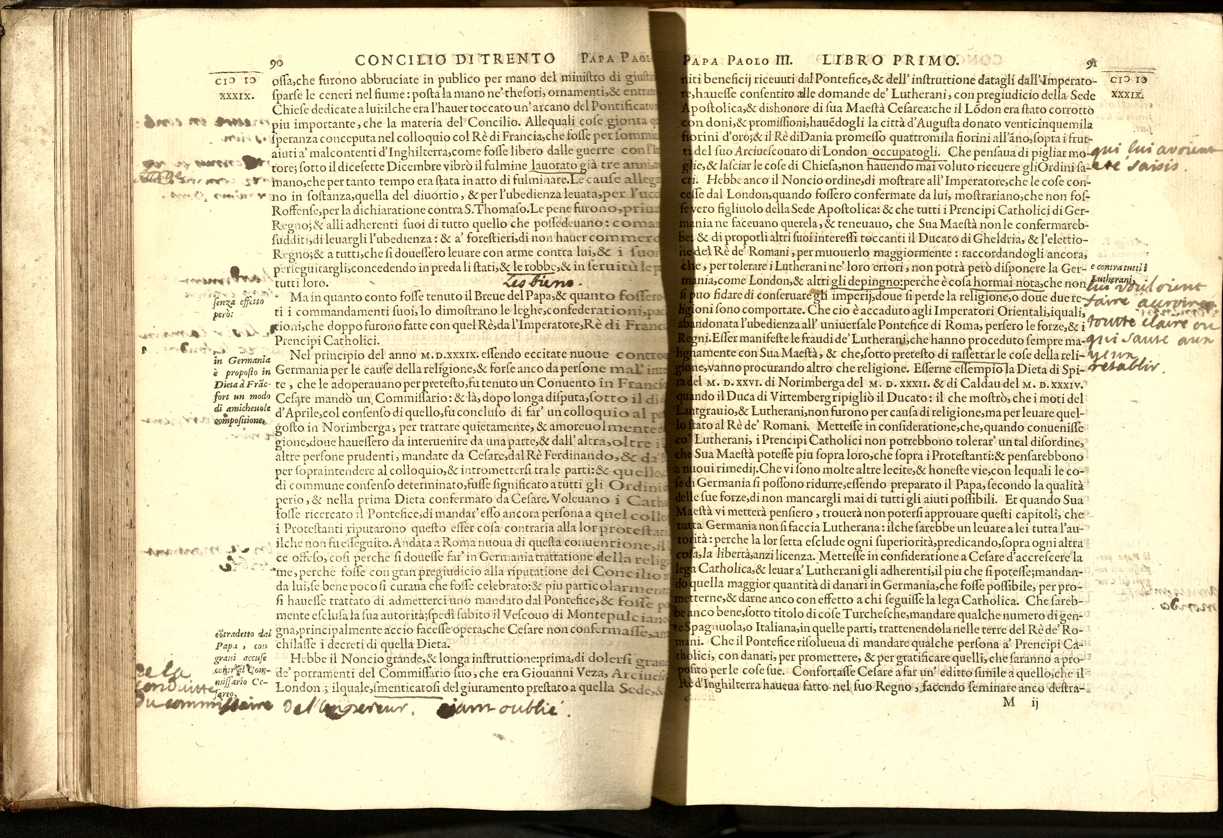 90 CONCILIO DI TRENTO PAPA PAOL
CIↃ IↃ
XXXIX.
ossa, che furono abbruciate in publico per mano del ministro di giusti
sparse le ceneri nel fiume: posta la mano ne' thesori, ornamenti, & entra
Chiese dedicate a lui: il che era l'hauer toccato vn'arcano del Pontificato
piu importante, che la materia del Concilio. Alle quali cose gionta
speranza conceputa nel colloquio col Rè di Francia, che fosse per somm
aiuti a' malcontenti d'Inghilterra, come fosse libero dalle guerre con l'I
tore; sotto il dicesette Dicembre vibrò il fulmine lauorato già tre anni
mano, che per tanto tempo era stata in atto di fulminare. Le cause allega
no in sostanza, quella del diuortio, & per l'ubedienza leuata, per l'ucc
Roffense, per la dichiaratione contra S. Thomaso. Le pene furono, priu
Regno; & alli adherenti suoi di tutto quello che possedeuano: coma
sudditi, di leuargli l'ubedienza: & a' forestieri, di non hauer commerc
Regno; & a tutti, che si douessero leuare con arme contra lui, & i suoi
perseguitargli, concedendo in preda li stati, & le robbe, & in seruitù le p
tutti loro. Les biens.
senza effetto
però:
Ma in quanto conto fosse tenuto il Breue del Papa, & quanto fossero
ti i commandamenti suoi, lo dimostrano le leghe, confederationi, pa
tioni, che doppo furono fatte con quel Rè, da l'Imperatore, Rè di Franc
Prencipi Catholici.
in Germania
è proposto in
Dieta à Frac-
fort un modo
di amicheuole
compositione,
Nel principio del anno M. D. XXXIX. essendo eccitate nuoue contro
Germania per le cause della religione, & forse anco da persone mal' int
te, che le adoperauano per pretesto, fu tenuto un Conuento in Francf
Cesare mandò un Commissario: & là, dopo longa disputa, sotto il di
d'Aprile, col consenso di quello, fu concluso di far' un colloquio al p
gosto in Norimberga, per trattare quietamente, & amoreuolmente
gione, doue hauessero da interuenire da una parte, & dall' altra, oltre i
altre persone prudenti, mandate da Cesare, dal Rè Ferdinando, & da'
per sopraintendere al colloquio, & intromettersi tra le parti: & quello
di commune consenso determinato, fusse significato a tutti gli Ordini
perio, & nella prima Dieta confermato da Cesare. Voleuano i Cath
fosse ricercato il Pontefice, di mandar' esso ancora persona a quel collo
i Protestanti riputarono questo esser cosa contraria alla lor protestat
il che non fu esseguito. Andata a Roma nuoua di questa conuentione, il
ce offeso, così perche si douesse far' in Germania trattatione della relig
me, perche fosse con gran pregiudicio alla riputatione del Concilio
da lui, se bene poco si curaua che fosse celebrato: & più particolarment
si hauesse trattato di admetterci uno mandato dal Pontefice, & fosse p
mente esclusa la sua autorità; spedì subito il Vescouo di Montepulciano
gna, principalmente acciò facesse opera, che Cesare non confermasse, an
chilasse i decreti di quella Dieta.
cõtradetto dal
Papa, con
graui accuse
contra'l Com-
missario Ce-
sareo.
Hebbe il Noncio grande, & longa instruttione: prima, di dolersi gran
de' portamenti del Commissario suo, che era Giouanni Veza, Arciue
London; il quale, smenticatosi del giuramento prestato a quella Sede, &
de la
conduitte
du commissaire de l'Empereur. aiant oublié.
PAPA PAOLO III. LIBRO PRIMO. 91
CIↃ IↃ
XXXIX.
niti beneficij riceuuti dal Pontefice, & dell' instruttione datagli dall'Imperato-
re, hauesse consentito alle domande de' Lutherani, con pregiudicio della Sede
Apostolica, & dishonore di sua Maestà Cesarea: che il Lõdon era stato corrotto
con doni, & promissioni, hauẽdogli la città d'Augusta donato venticinquemila
fiorini d'oro; & il Rè di Dania promesso quattromila fiorini all'ãno, sopra i frut-
ti del suo Arciuescouato di London occupatogli. Che pensaua di pigliar mo-
glie, & lasciar le cose di Chiesa, non hauendo mai voluto riceuere gli Ordini sa-
cri. Hebbe anco il Noncio ordine, di mostrare all' Imperatore, che le cose con-
cesse dal London, quando fossero confermate da lui, mostrariano, che non fos-
se vero figliuolo della Sede Apostolica: & che tutti i Prencipi Catholici di Ger-
mania ne faceuano querela, & teneuano, che Sua Maestà non le confermareb-
be: & di proporli altri suoi interessi toccanti il Ducato di Gheldria, & l'elettio-
ne del Rè de' Romani, per muouerlo maggiormente: raccordandogli ancora,
che, per tolerare i Lutherani ne' loro errori, non potrà però disponere la Ger-
mania, come London, & altri gli depingno: perche è cosa hormai nota, che non
si può fidare di conseruare gli imperij, doue si perde la religione, o doue due re-
ligioni sono comportate. Che ciò è accaduto agli Imperatori Orientali, i quali,
abandonata l'ubedienza all' uniuersale Pontefice di Roma, persero le forze, & i
Regni. Esser manifeste le fraudi de' Lutherani, che hanno proceduto sempre ma-
lignamente con Sua Maestà, & che, sotto pretesto di rassettar le cose della reli-
gione, vanno procurando altro che religione. Esserne essempio la Dieta di Spi-
ra del M. D. XXVI. di Norimberga del M. D. XXXII. & di Caldau del M. D. XXXIV.
quando il Duca di Virtemberg ripigliò il Ducato: il che mostrò, che i moti del
Lantgrauio, & Lutherani, non furono per causa di religione, ma per leuare quel-
lo stato al Rè de' Romani. Mettesse in consideratione, che, quando conuenisse
co' Lutherani, i Prencipi Catholici non potrebbono tolerar' un tal disordine,
che Sua Maestà potesse piu sopra loro, che sopra i Protestanti: & pensarebbono
a nuoui rimedij. Che vi sono molte altre lecite, & honeste vie, con le quali le co-
se di Germania si possono ridurre, essendo preparato il Papa, secondo la qualità
delle sue forze, di non mancargli mai di tutti gli aiuti possibili. Et quando Sua
Maestà vi metterà pensiero, trouerà non potersi approuare questi capitoli, che
tutta Germania non si faccia Lutherana: il che sarebbe un leuare a lei tutta l'au-
torità: perche la lor setta esclude ogni superiorità, predicando, sopra ogni altra
cosa, la libertà, anzi licenza. Mettesse in consideratione a Cesare d'accrescere la
lega Catholica, & leuar a' Lutherani gli adherenti, il piu che si potesse; mandan-
do quella maggior quantità di danari in Germania, che fosse possibile, per pro-
metterne, & darne anco con effetto a chi seguisse la lega Catholica. Che sareb-
be anco bene, sotto titolo di cose Turchesche, mandare qualche numero di gen-
te Spagnuola, o Italiana, in quelle parti, trattenendola nelle terre del Rè de' Ro-
mani. Che il Pontefice risolueua di mandare qualche persona a' Prencipi Ca-
tholici, con danari, per promettere, & per gratificare quelli, che saranno a pro-
posito per le cose sue. Confortasse Cesare a far' un' editto simile a quello, che il
Rè d'Inghilterra haueua fatto nel suo Regno, facendo seminare anco destra-
M ij
qui lui avoient
eté saisis.
e contra tutti i
Lutherani,
toutte claire ou
qui saute aux
yeux
restablir.